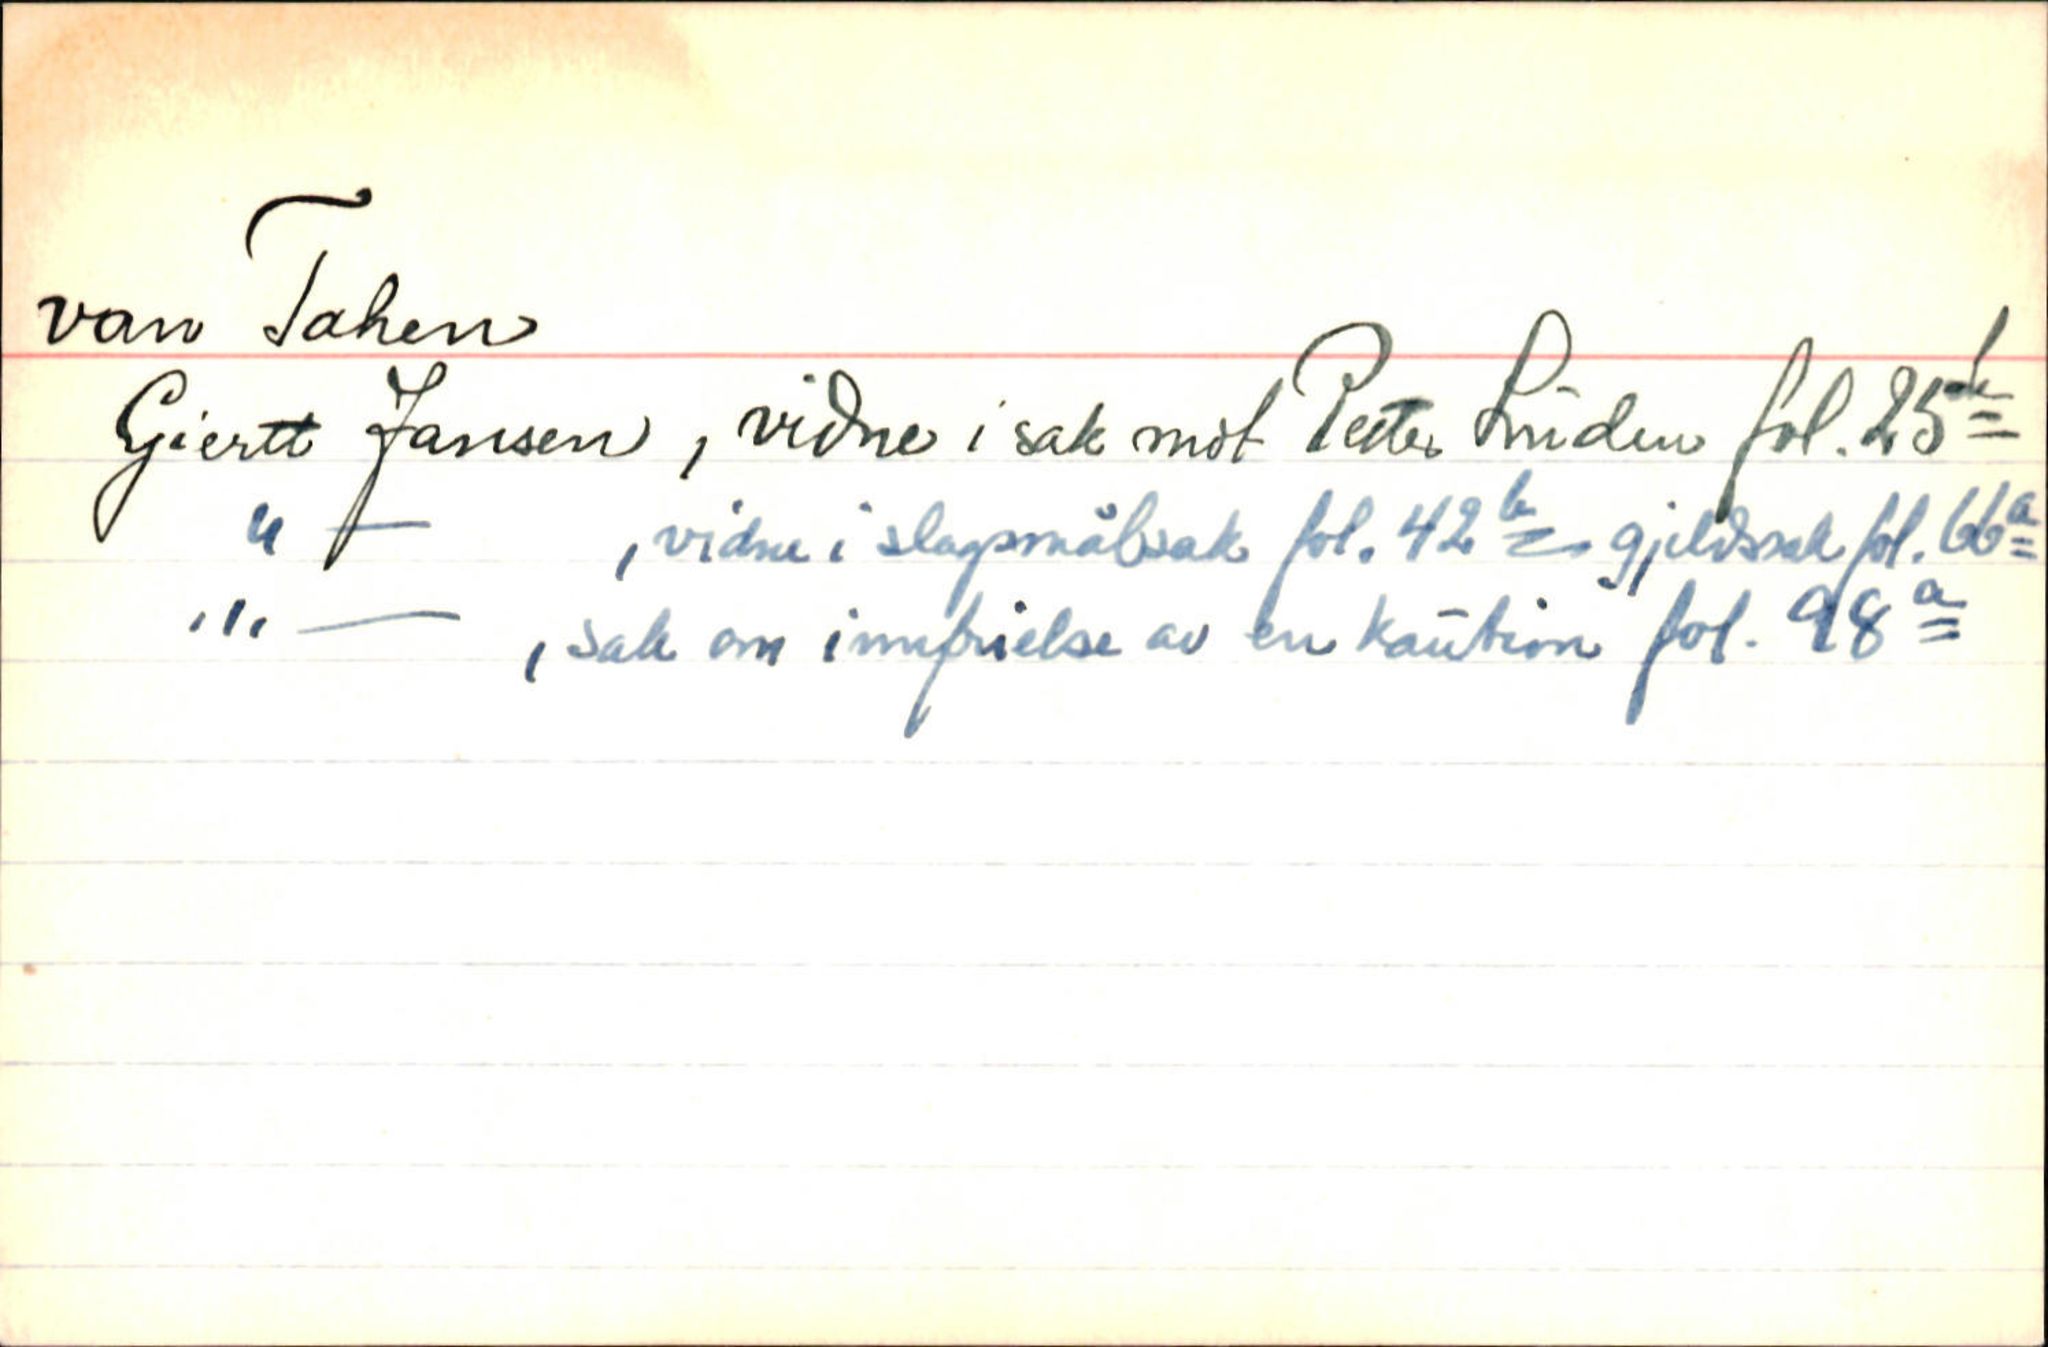 van Tahen
Giertt Jansen, vidne i sak mot Peter Lüden fol. 25b
" — , vidne i slagsmålsak fol. 42b gjeldssak fol. 66a
" — , sak om innfrielse av en kaution fol. 98a